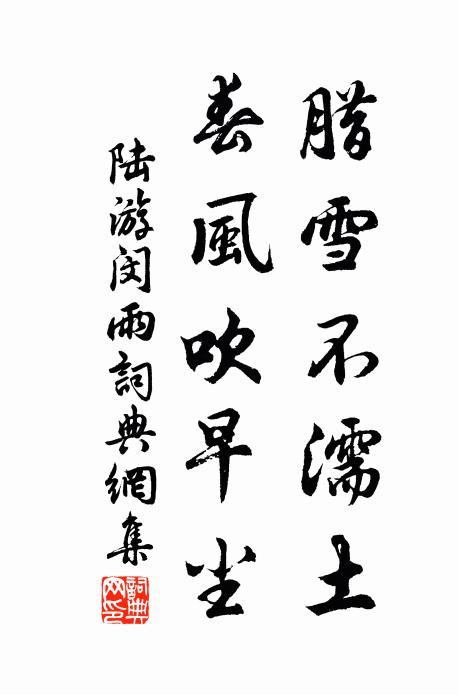 腊雪不濡土
春風吹早尘
陆游闵雨詞典網集
詞典网印